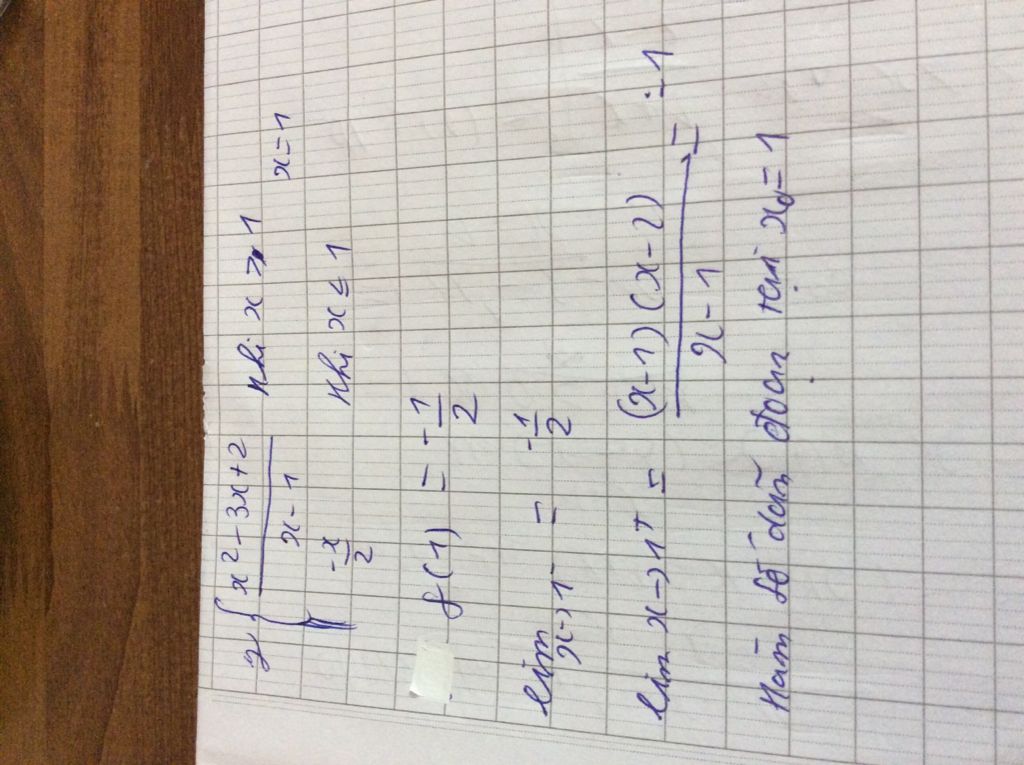 y { x² - 3x + 2 / x - 1 khi x > 1 x = 1
-x/2 khi x ≤ 1
f(1) = -1/2
lim x→1⁻ = -1/2
lim x→1⁺ = (x-1)(x-2) / x - 1 = -1
Hàm số dán đoạn tại x₀ = 1